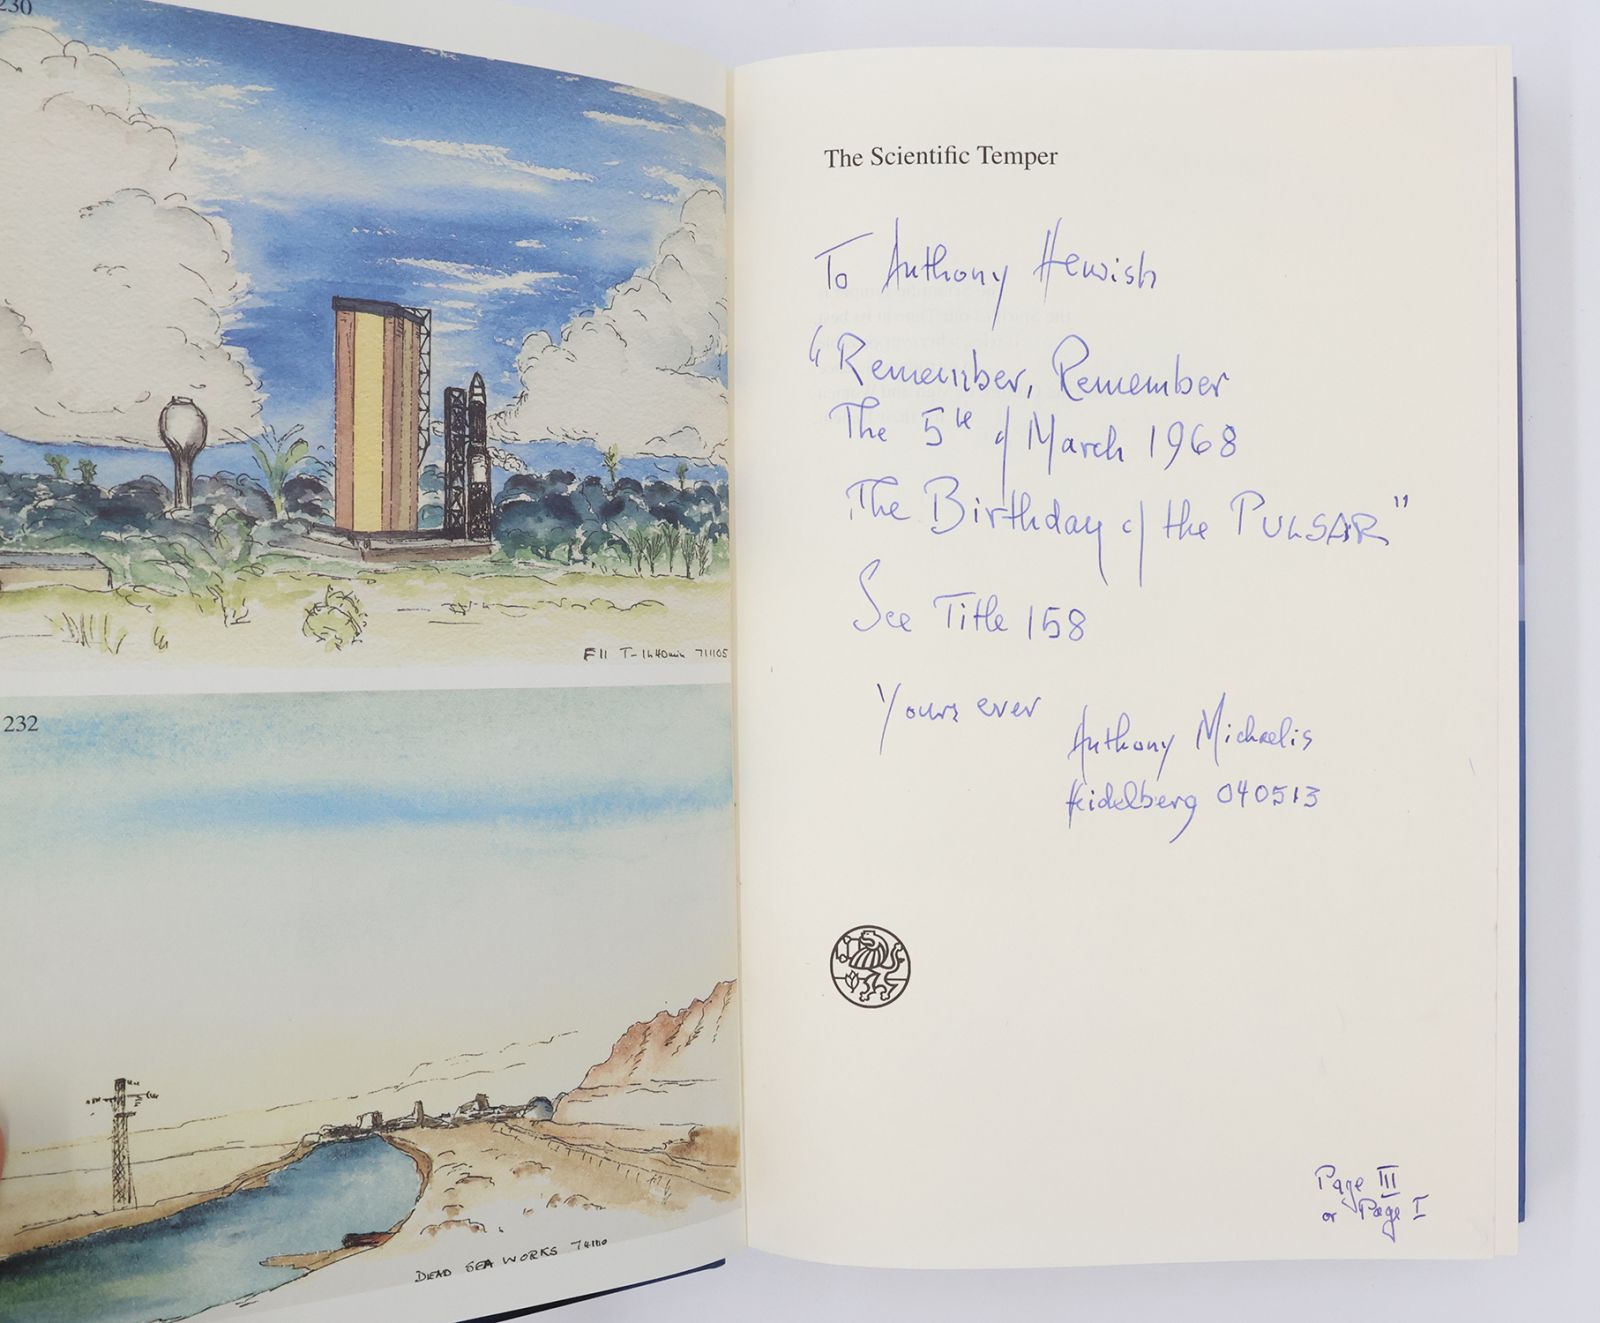 230
F11 T-1h40min 711105
232
DEAD SEA WORKS
The Scientific Temper
To Anthony Hewish
"Remember, Remember
The 5th of March 1968
The Birthday of the PULSAR"
See Title 158
Yours ever
Anthony Michaelis
Heidelberg 040513
Page III
or Page I